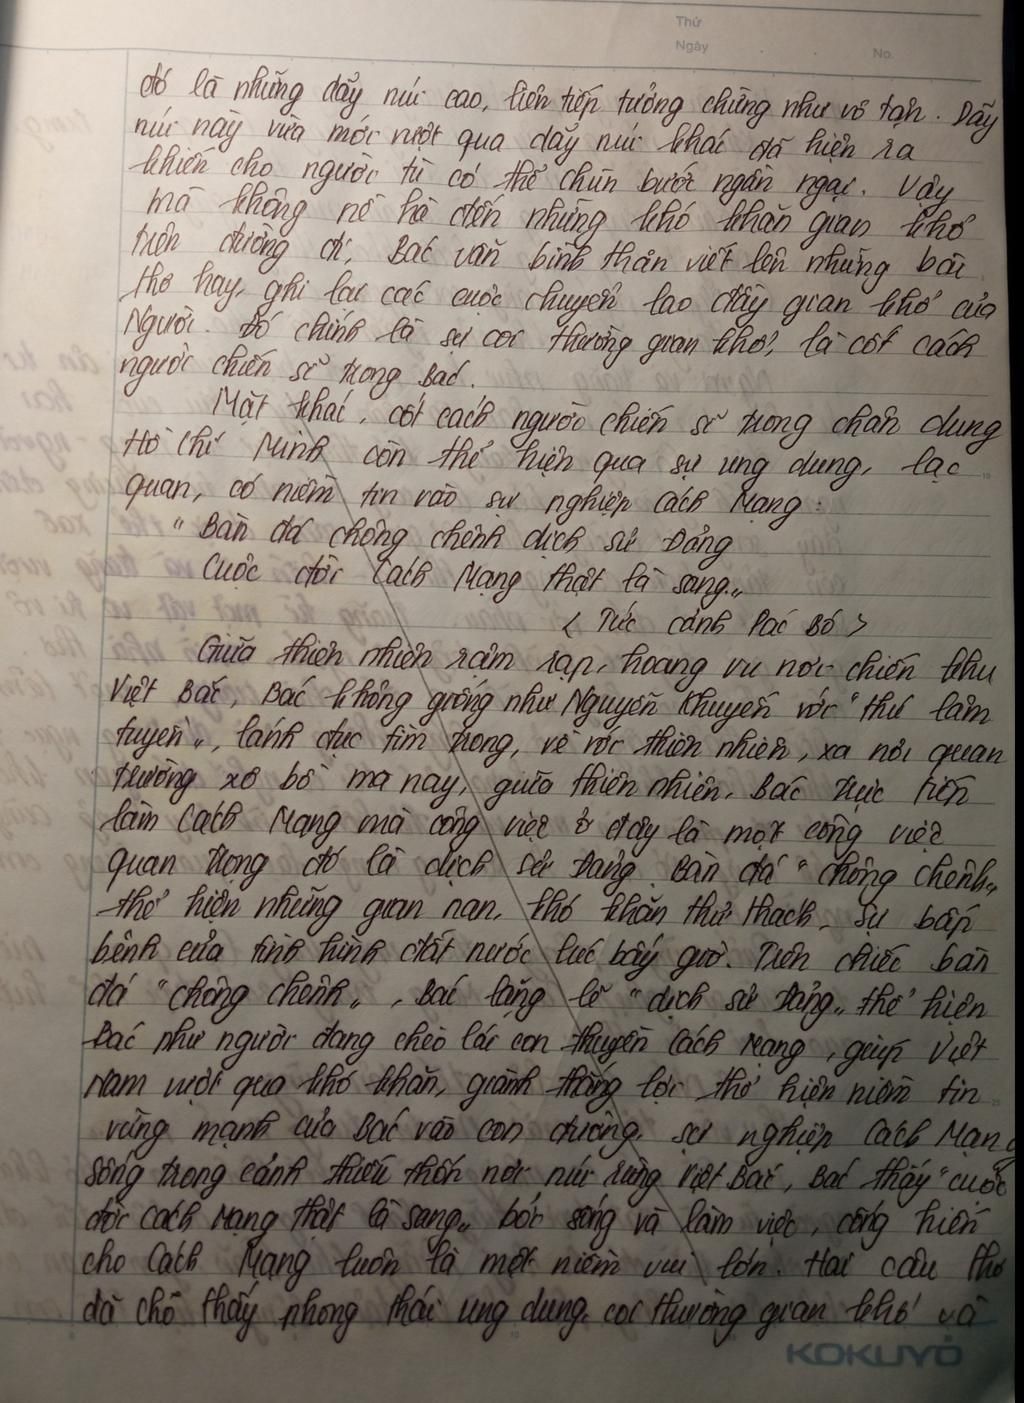 Thứ
Ngày No.
đó là những dãy núi cao, liên tiếp tưởng chừng như vô tận. Dãy
núi này vừa mới vượt qua dãy núi khác đã hiện ra
khiến cho người tù có thể chùn bước ngần ngại. Vậy
mà không nề hà đến những khó khăn gian khổ
trên đường đi, Bác vẫn bình thản viết lên những bài
thơ hay, ghi lại các cuộc chuyển lao đầy gian khổ của
Người. Đó chính là sự coi thường gian khổ, là cốt cách
người chiến sĩ trong Bác.
Mặt khác, cốt cách người chiến sĩ trong chân dung
Hồ Chí Minh còn thể hiện qua sự ung dung, lạc
quan, có niềm tin vào sự nghiệp Cách Mạng:
" Bàn đá chông chênh dịch sử Đảng
Cuộc đời Cách Mạng thật là sang„
< Tức cảnh Pác Bó >
Giữa thiên nhiên rậm rạp, hoang vu nơi chiến khu
Việt Bắc, Bác không giống như Nguyễn Khuyến với " thú lâm
tuyền„, lánh đục tìm trong, về với thiên nhiên, xa nơi quan
trường xô bồ mà nay, giữa thiên nhiên, Bác trực tiếp
làm Cách Mạng mà công việc ở đây là một công việc
quan trọng đó là dịch sử Đảng. Bàn đá " chông chênh„
thể hiện những gian nan, khó khăn thử thách, sự bấp
bênh của tình hình đất nước lúc bấy giờ. Trên chiếc bàn
đá " chông chênh„, Bác lặng lẽ " dịch sử Đảng„ thể hiện
Bác như người đang chèo lái con thuyền Cách Mạng, giúp Việt
Nam vượt qua khó khăn, giành thắng lợi thể hiện niềm tin
vững mạnh của Bác vào con đường, sự nghiệp Cách Mạng
Sống trong cảnh thiếu thốn nơi núi rừng Việt Bắc, Bác thấy " cuộc
đời Cách Mạng thật là sang„ bởi sống và làm việc, cống hiến
cho Cách Mạng luôn là một niềm vui lớn. Hai câu thơ
đã chỗ thấy phong thái ung dung, coi thường gian khổ và
KOKUYO